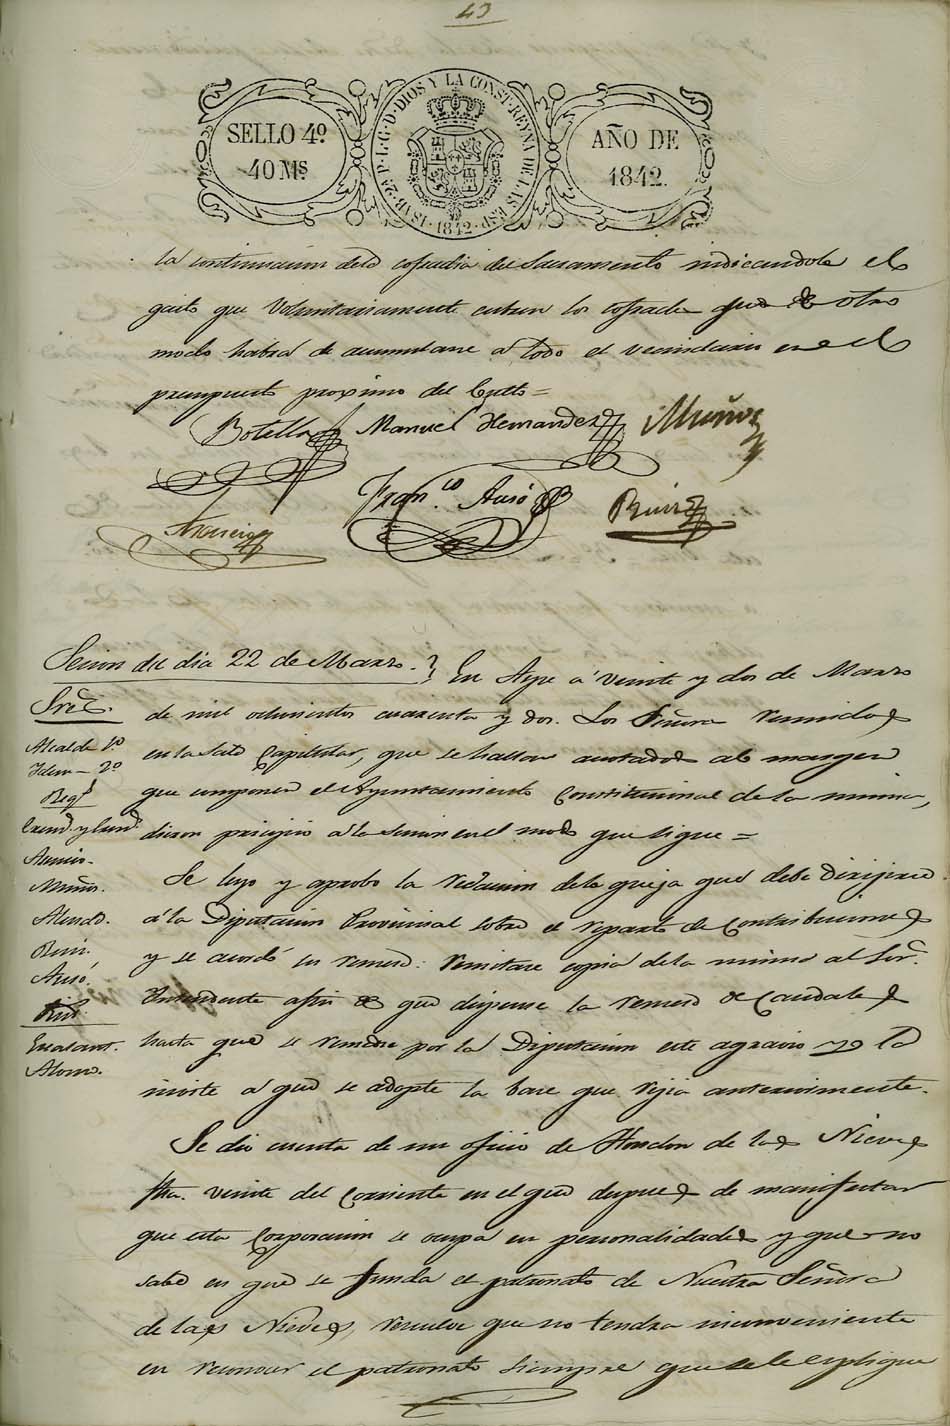 43
SELLO 4º
40 Mˢ
ISAB. 2ª P. L. G. D. DIOS Y LA CONST. REYNA DE LAS ESP.
1842
AÑO DE
1842.
la continuacion de la cofradia del Sacramento indicandole el
gasto que voluntariamente cubren los cofrades que de otro
modo habrá de acumularse á todo el vecindario en el
presupuesto proximo del Culto =
Botella Manuel Hernandez Muñoz
Franᶜᵒ. Ausó Ruiz
Sesion del dia 22 de Marzo.
En Aspe á veinte y dos de Marzo
Sres.
de mil ochocientos cuarenta y dos. Los Señores reunidos
Alcalde 1º
en la Sala Capitular, que se hallan anotados al margen
Idem - 2º
que componen el Ayuntamiento Constitucional de la misma,
Regˢ
dieron principio á la sesion en el modo que sigue =
Muños.
Ruiz.
Ausó.
Alonso.
Se leyo y aprobo la redaccion de la queja que debe dirigirse
á la Diputacion Provincial sobre el reparto de Contribuciones
y se acordó su remesa: remitase copia de la misma al Sor.
Intendente afin de que dispense la remesa de Caudales
hasta que se remedie por la Diputacion este agravio y la
inste á que se adopte la base que rejia anteriormente.
Se dio cuenta de un oficio de Hondon de las Nieves
fha. veinte del corriente en el que despues de manifestar
que esta Corporacion se ocupa en personalidades y que no
sabe en que se funda el patronato de Nuestra Señora
de las Nieves, resuelve que no tendra inconveniente
en reconocer el patronato siempre que se le esplique